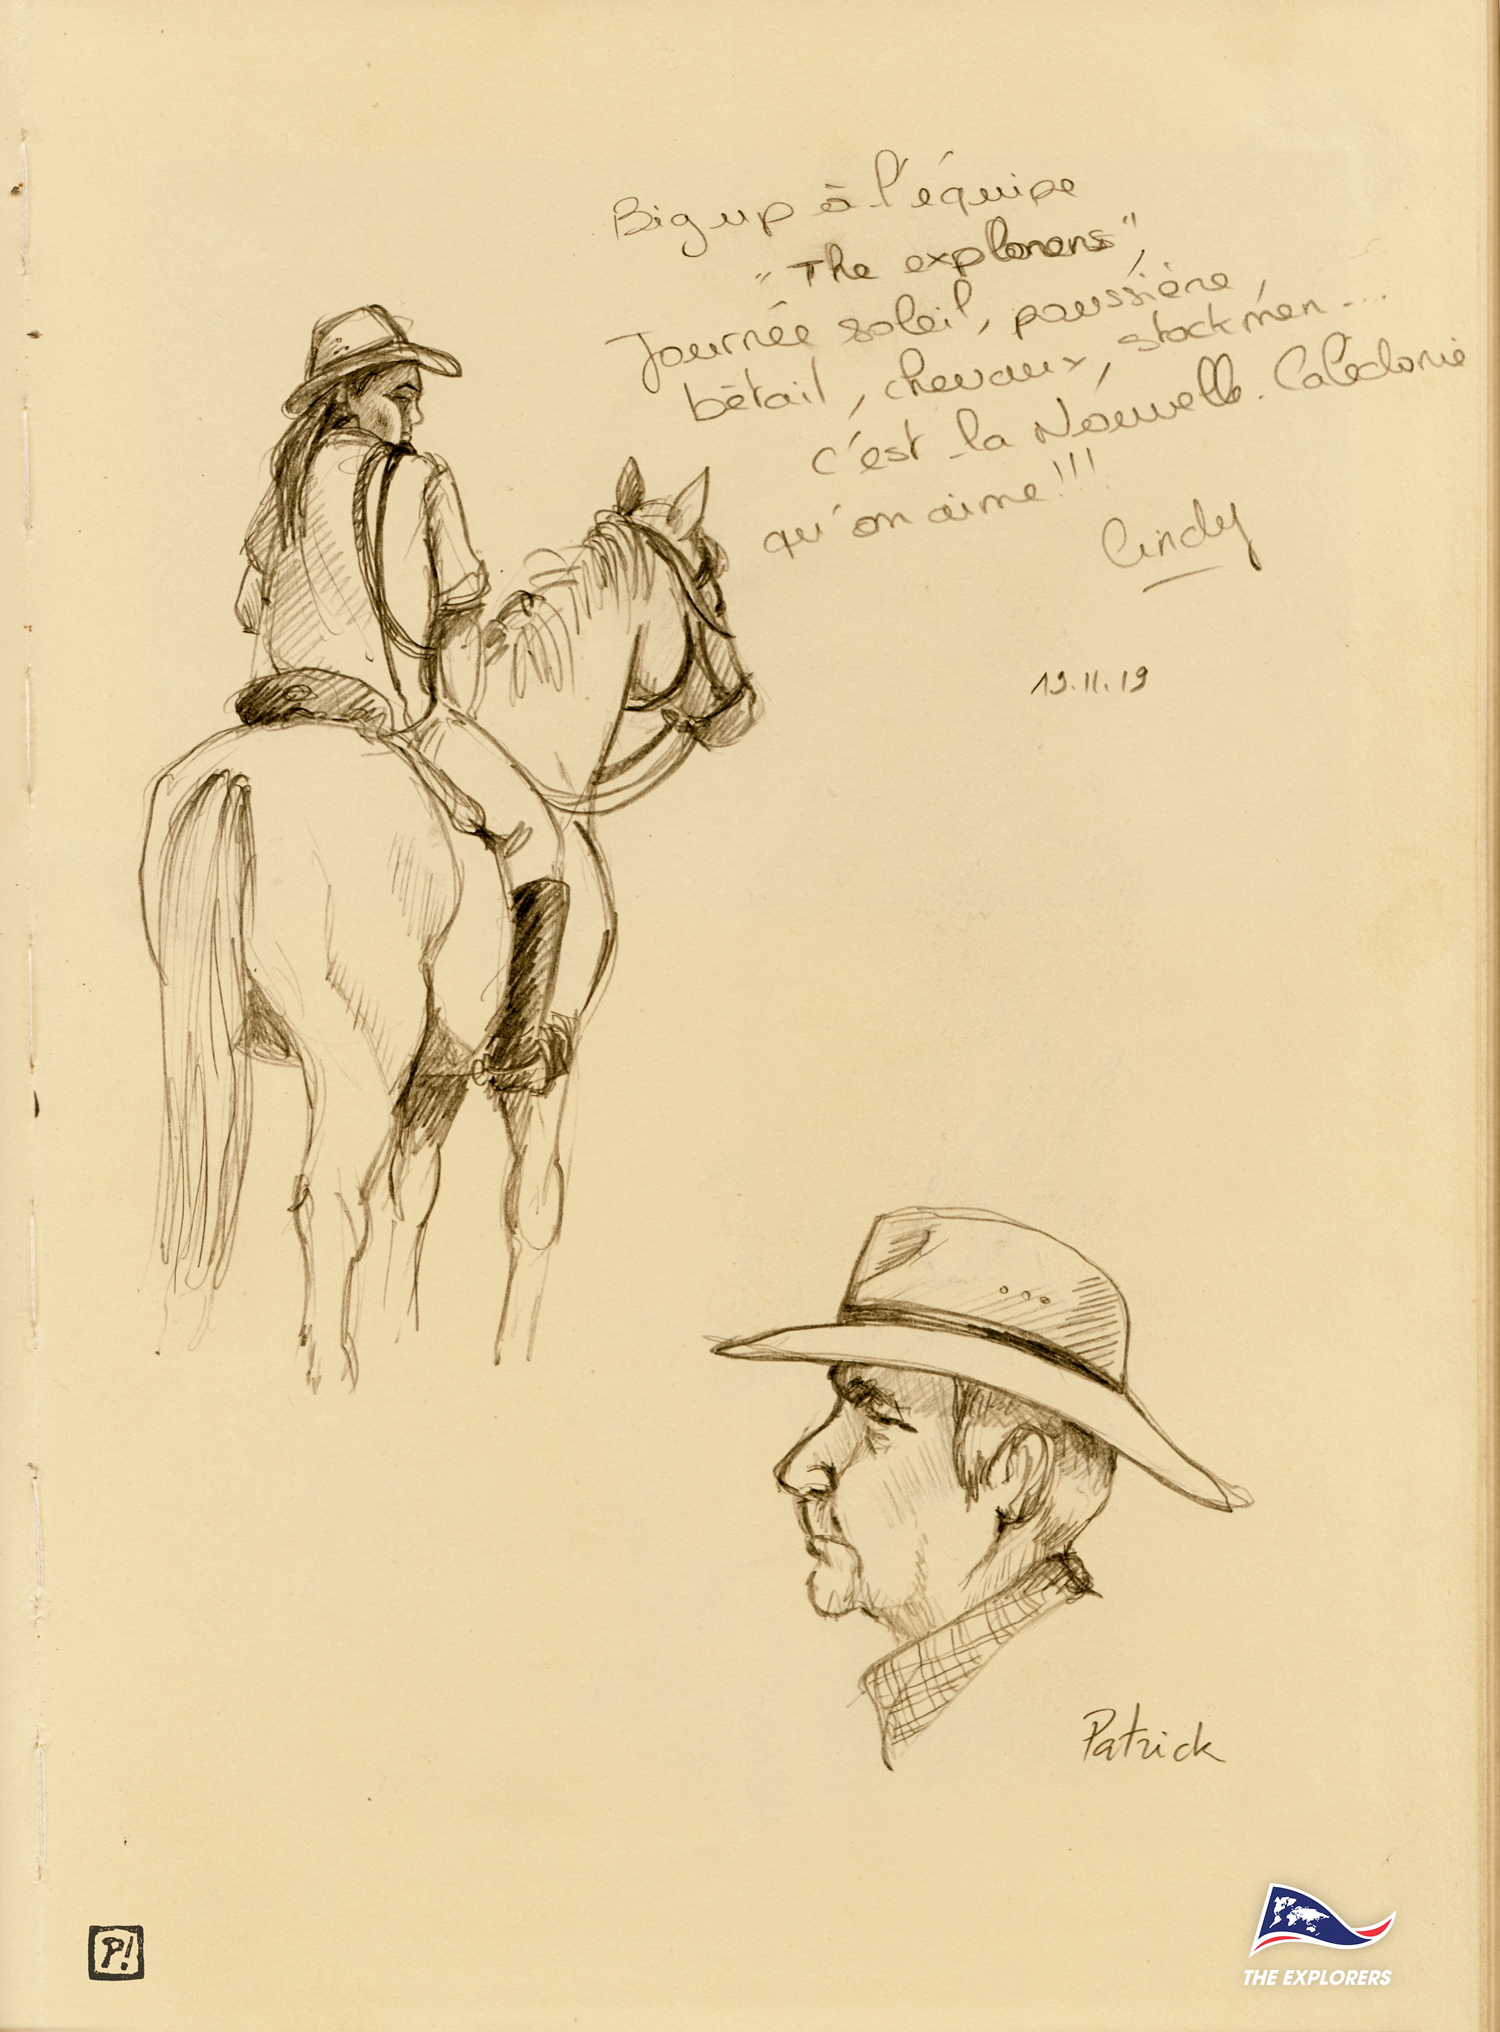 Big up à l'équipe
"The explorers",
Journée soleil, poussière,
bétail, chevaux, stockmen...
c'est la Nouvelle-Calédonie
qu'on aime!!!
Cindy
19.11.19
Patrick
P!
THE EXPLORERS